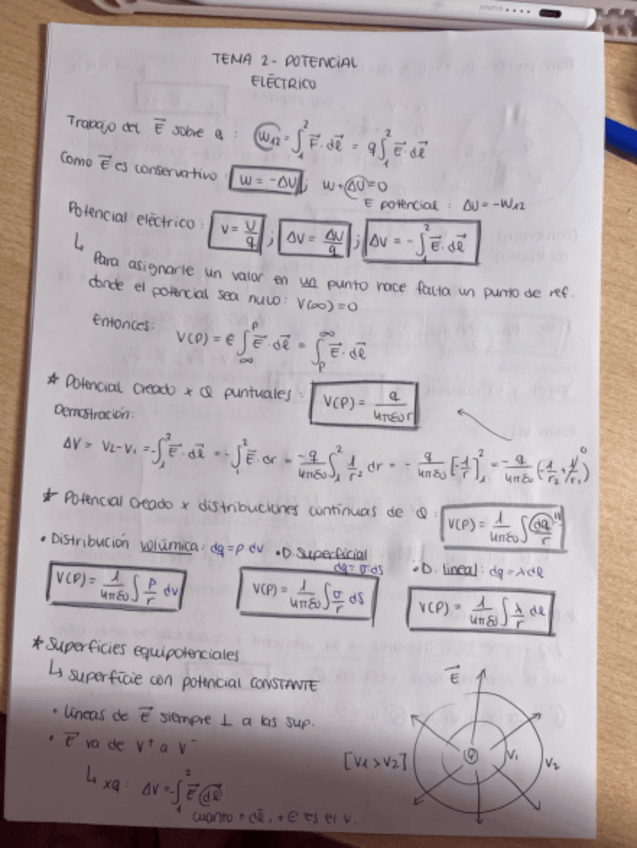 TEMA 2 - POTENCIAL
ELÉCTRICO
Trabajo del E⃗ sobre q : W₁₂ = ∫₁² F⃗ · dl⃗ = q ∫₁² E⃗ · dl⃗
Como E⃗ es conservativo : W = -ΔU ; W + ΔU = 0
E potencial : ΔU = -W₁₂
Potencial eléctrico : V = U/q ; ΔV = ΔU/q ; ΔV = - ∫₁² E⃗ · dl⃗
↳ Para asignarle un valor en un punto hace falta un punto de ref.
donde el potencial sea nulo : V(∞) = 0
Entonces:
V(P) = ∫∞ᴾ E⃗ · dl⃗ = ∫ₚ^∞ E⃗ · dl⃗
* Potencial creado x Q puntuales : V(P) = q/4πε₀r
Demostración:
ΔV = V₂-V₁ = -∫₁² E⃗ · dl⃗ = -∫₁² E⃗ dr = -q/4πε₀ ∫₁² 1/r² dr = - q/4πε₀ [-1/r]₁² = -q/4πε₀ (-1/r₂ + 1/r₁) 0
* Potencial creado x distribuciones continuas de Q : V(P) = 1/4πε₀ ∫ dq/r
• Distribución volúmica : dq = ρ dv • D. superficial dq = σ ds • D. lineal : dq = λ dl
V(P) = 1/4πε₀ ∫ ρ/r dv V(P) = 1/4πε₀ ∫ σ/r ds V(P) = 1/4πε₀ ∫ λ/r dl
* Superficies equipotenciales
↳ superficie con potencial CONSTANTE
• líneas de E⃗ siempre ⊥ a las sup.
• E⃗ va de V⁺ a V⁻
↳ xq : ΔV = -∫₁² E⃗ dl⃗
cuanto + dl, + es el V.
E⃗
[V₁ > V₂]
V₁
V₂